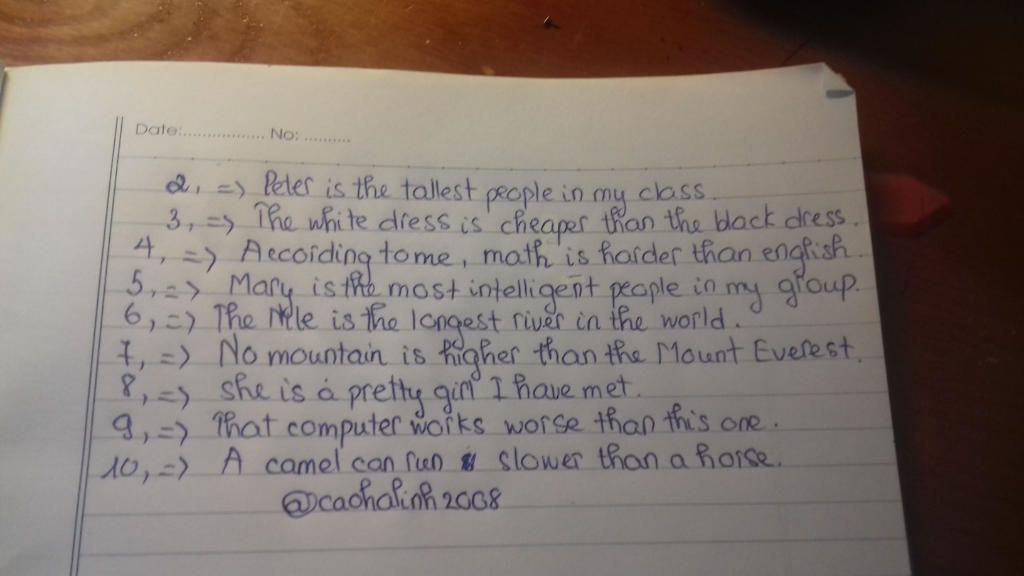 Date:................. No: ..........
2, => Peter is the tallest people in my class.
3, => The white dress is cheaper than the black dress.
4, => According to me, math is harder than english.
5, => Mary is the most intelligent people in my group.
6, => The Nile is the longest river in the world.
7, => No mountain is higher than the Mount Everest.
8, => she is a pretty girl I have met.
9, => That computer works worse than this one.
10, => A camel can run slower than a horse.
@caohalinh2008